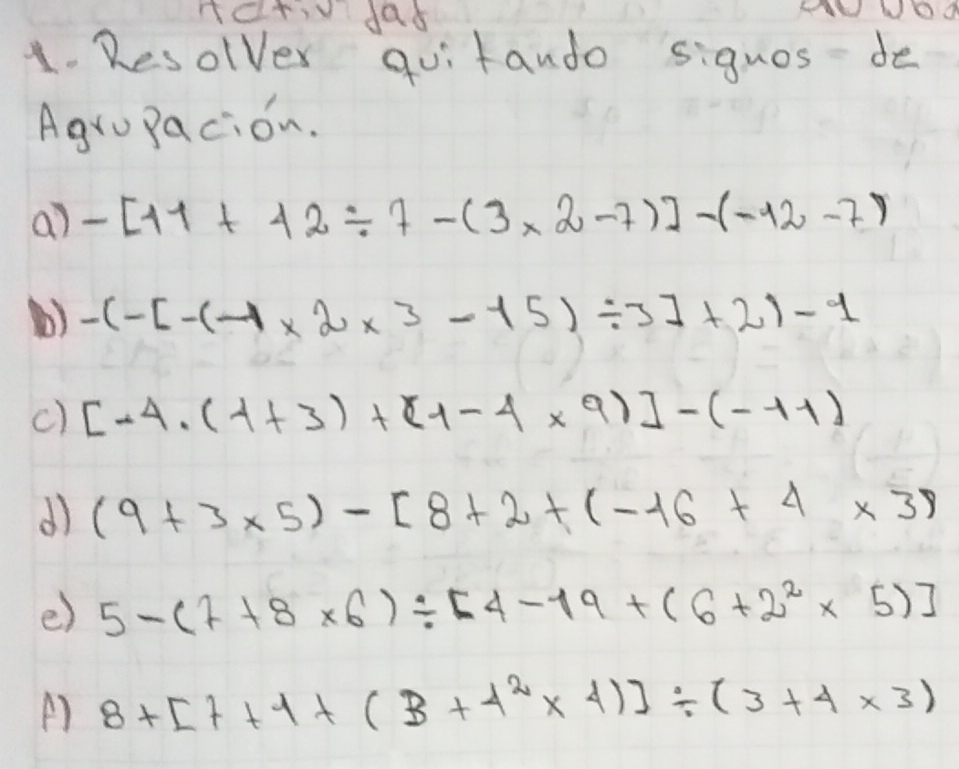 1. Resolver quitando signos de
Agrupación.
a) -[11 + 12 ÷ 7 -(3 x 2 -7)] -(-12 -7)
b) -(-[-(-1 x 2 x 3 - 15) ÷3] +2) - 1
c) [-4.(1+3) + (1 - 4 x 9)] -(-11)
d) (9 + 3 x 5) - [8 + 2 + (-16 + 4 x 3)
e) 5 -(7 + 8 x 6) ÷ [4 -19 + (6 + 2² x 5)]
f) 8 + [7 + 1 + (3 + 4² x 4)] ÷ (3 + 4 x 3)